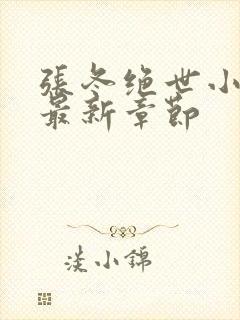 張冬绝世小
最新章節
淡小錦